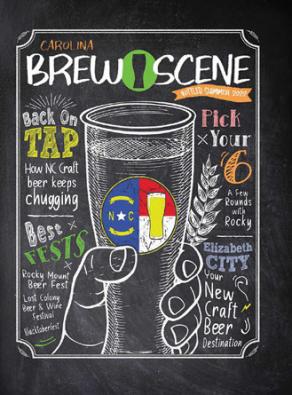 CAROLINA
BREW SCENE
BOTTLED SUMMER 2022
Back On
TAP
How NC Craft
beer keeps
chugging
Best
FESTS
Rocky Mount
Beer Fest
Lost Colony
Beer & Wine
Festival
Hacktoberfest
N C
Pick
Your
6
A Few
Rounds
with
Rocky
Elizabeth
CITY
Your
New
Craft
Beer
Destination